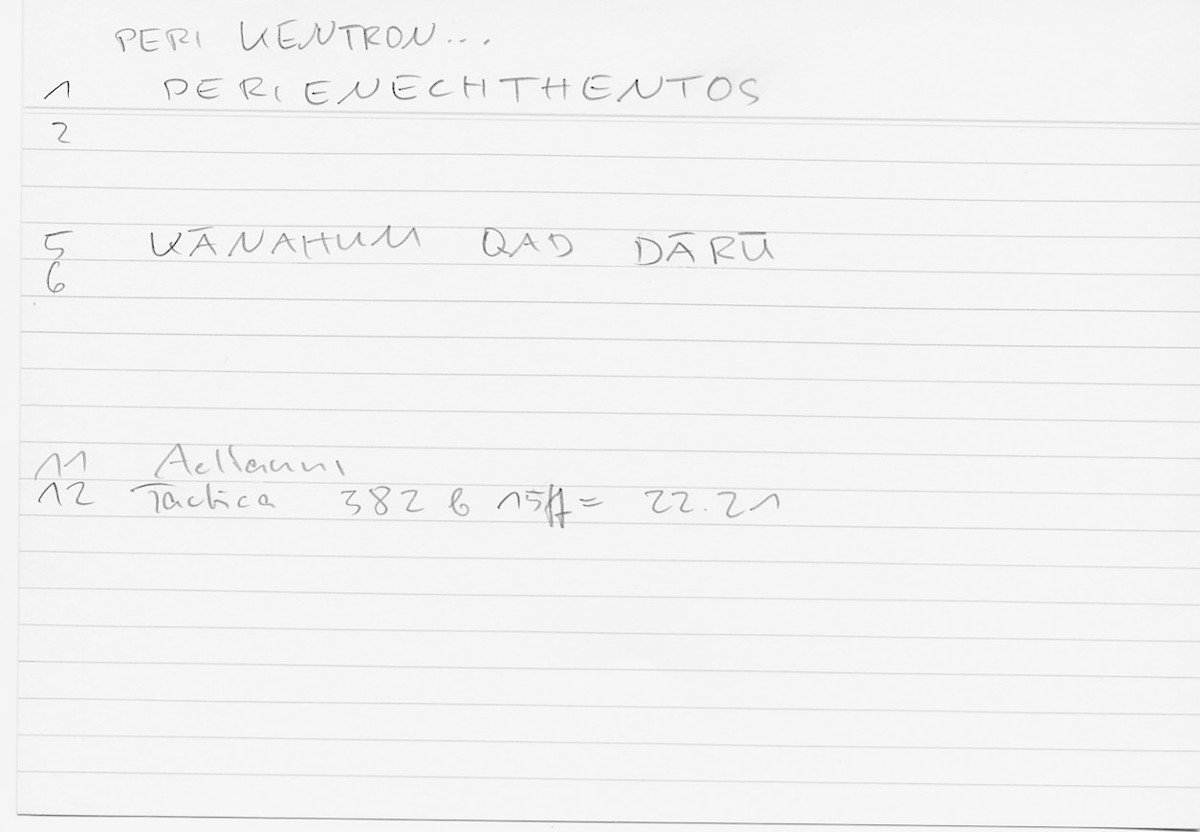 PERI KENTRON...
1 PERIENECHTHENTOS
2
5 KĀNAHUM QAD DĀRŪ
6
11 Aeliani
12 Tactica 382 b 15ff = 22.21